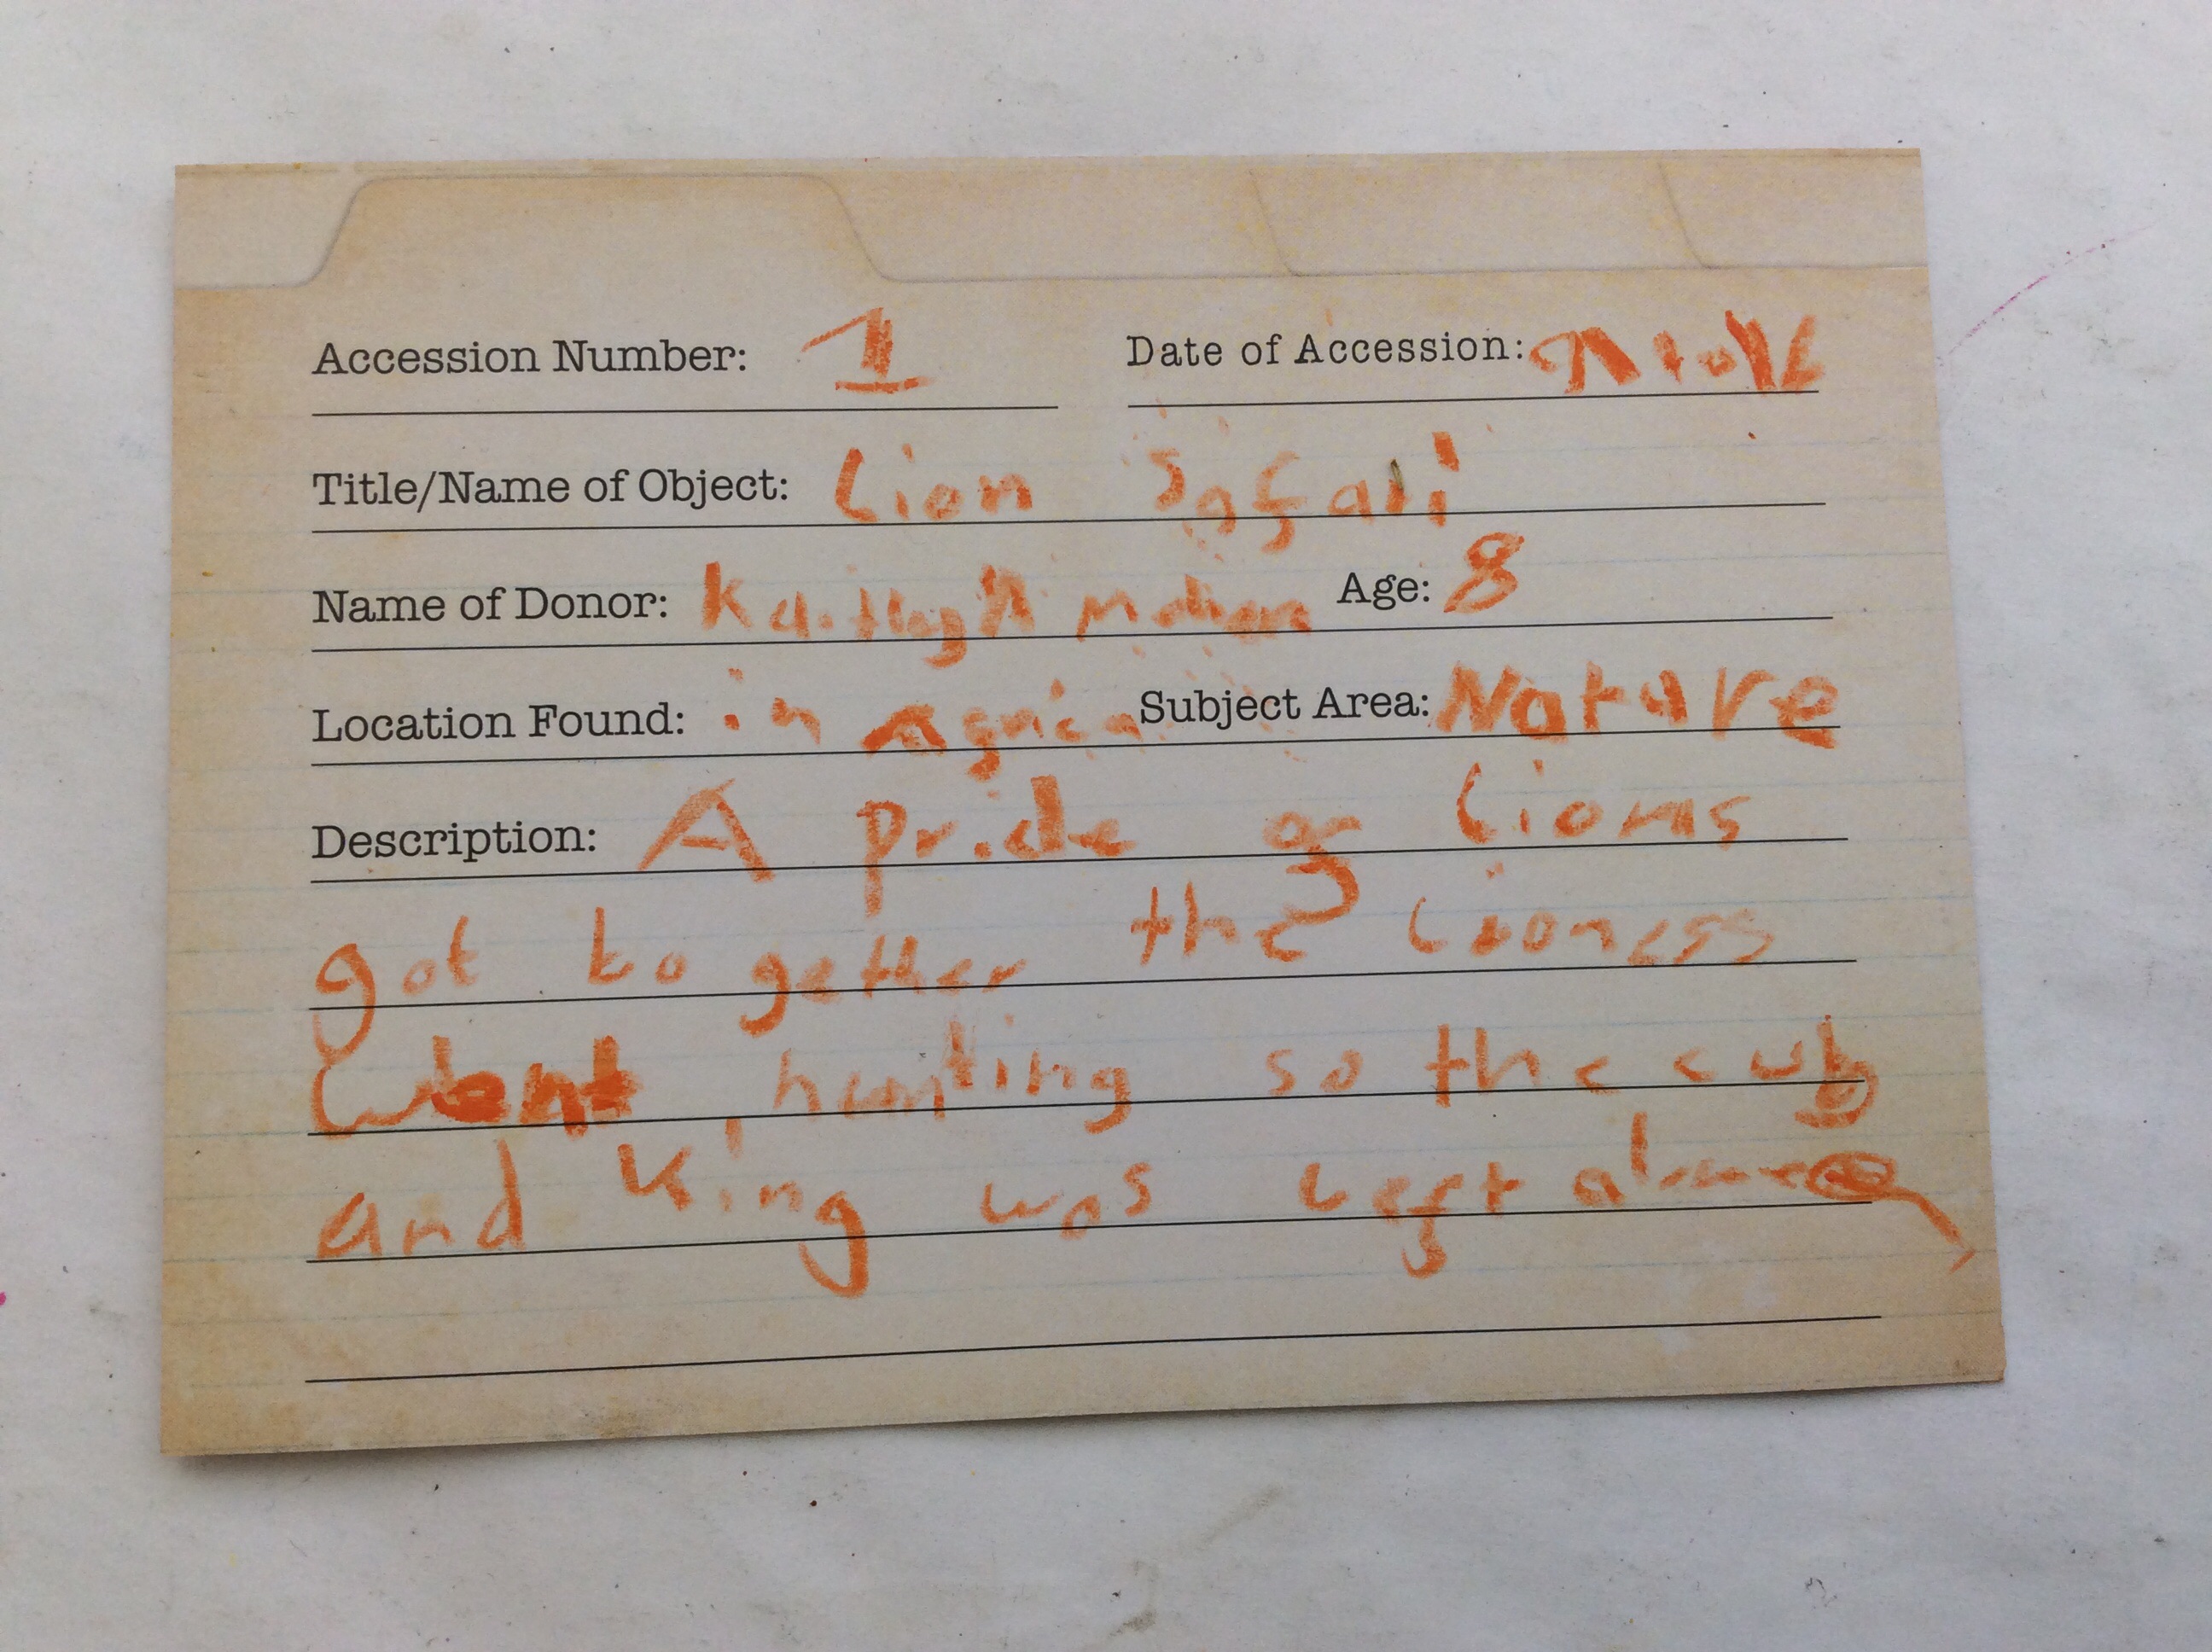 Accession Number: 1 Date of Accession:
Title/Name of Object: Lion Safari
Name of Donor: Age: 8
Location Found: in Subject Area: Nature
Description: A pride of lions
got to gether the lioness
went hunting so the cub
and king was left alone